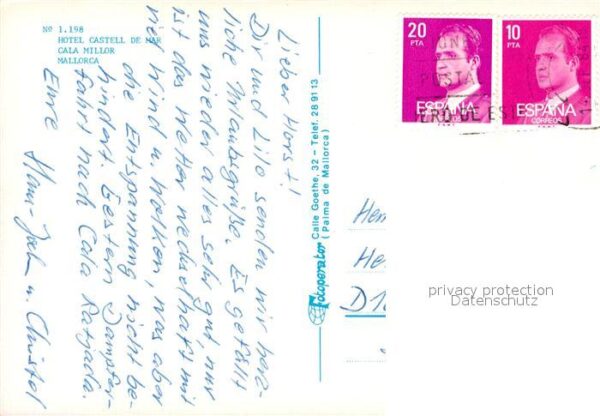 Nº 1.198
HOTEL CASTELL DE MAR
CALA MILLOR
MALLORCA
Lieber Horst!
Dir und Lilo senden wir herz-
liche Urlaubsgrüße. Es gefällt
uns wieder alles sehr gut, nur
ist das Wetter wechselhaft mit
viel Wind u. Wolken, was aber
die Entspannung nicht be-
hindert. Gestern Dampfer-
fahrt nach Cala Ratjada.
Eure Hans-Joch u. Christel
Fotoperator Calle Goethe, 32 - Telef. 28 91 13
(Palma de Mallorca)
20
PTA
ESPAÑA
CORREOS
10
PTA
ESPAÑA
CORREOS
Her
He
D 1
privacy protection
Datenschutz